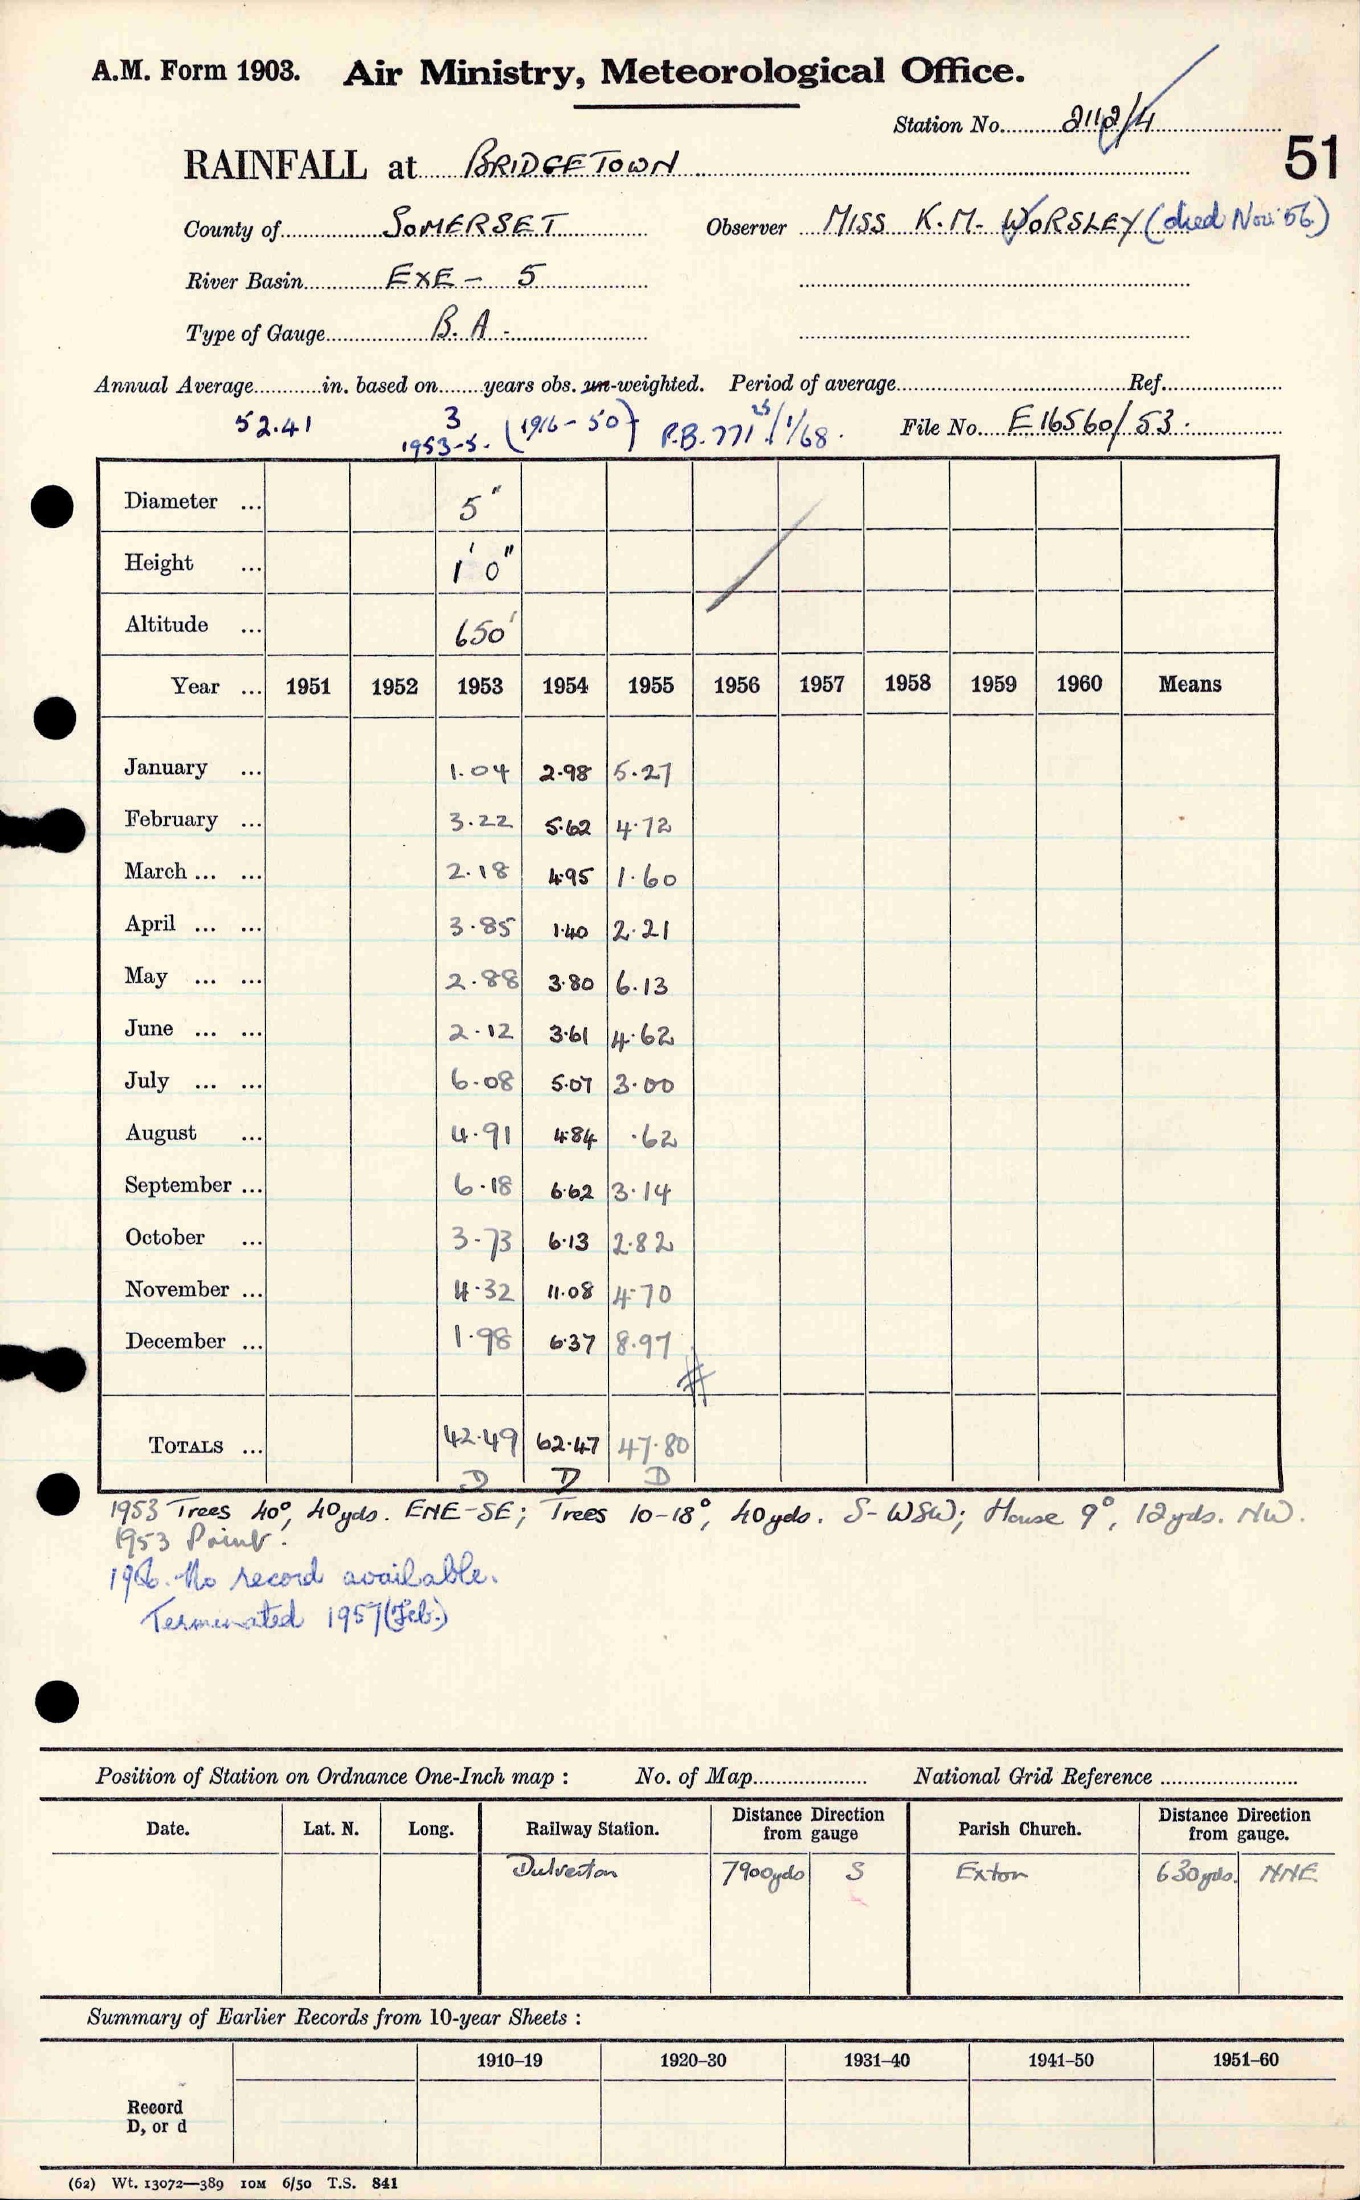 A.M. Form 1903. Air Ministry, Meteorological Office.
Station No. 2112/4
51
RAINFALL at BRIDGETOWN
County of SOMERSET Observer MISS K.M. WORSLEY (died Nov. 56)
River Basin EXE - 5
Type of Gauge B.A.
Annual Average in. based on years obs. un-weighted. Period of average Ref.
52.41 3 (1916-50) P.B. 771 25/1/68. File No. E16560/53.
1953-5.
Diameter ... 5"
Height ... 1' 0"
Altitude ... 650'
Year ... 1951 1952 1953 1954 1955 1956 1957 1958 1959 1960 Means
January ... 1.04 2.98 5.27
February ... 3.22 5.62 4.72
March ... ... 2.18 4.95 1.60
April ... ... 3.85 1.40 2.21
May ... ... 2.88 3.80 6.13
June ... ... 2.12 3.61 4.62
July ... ... 6.08 5.07 3.00
August ... 4.91 4.84 .62
September ... 6.18 6.62 3.14
October ... 3.73 6.13 2.82
November ... 4.32 11.08 4.70
December ... 1.98 6.37 8.97
TOTALS ... 42.49 62.47 47.80
D D D
1953 Trees 40°, 40yds. ENE-SE; Trees 10-18°, 40yds. S-WSW; House 9°, 12yds. NW.
1953 Paint.
1956. No record available.
Terminated 1957 (Feb.)
Position of Station on Ordnance One-Inch map : No. of Map National Grid Reference
Date. Lat. N. Long. Railway Station. Distance Direction from gauge Parish Church. Distance Direction from gauge.
Dulverton 7900yds S Exton 630yds. NNE
Summary of Earlier Records from 10-year Sheets :
1910–19 1920–30 1931–40 1941–50 1951–60
Record
D, or d
(62) Wt. 13072—389 10M 6/50 T.S. 841